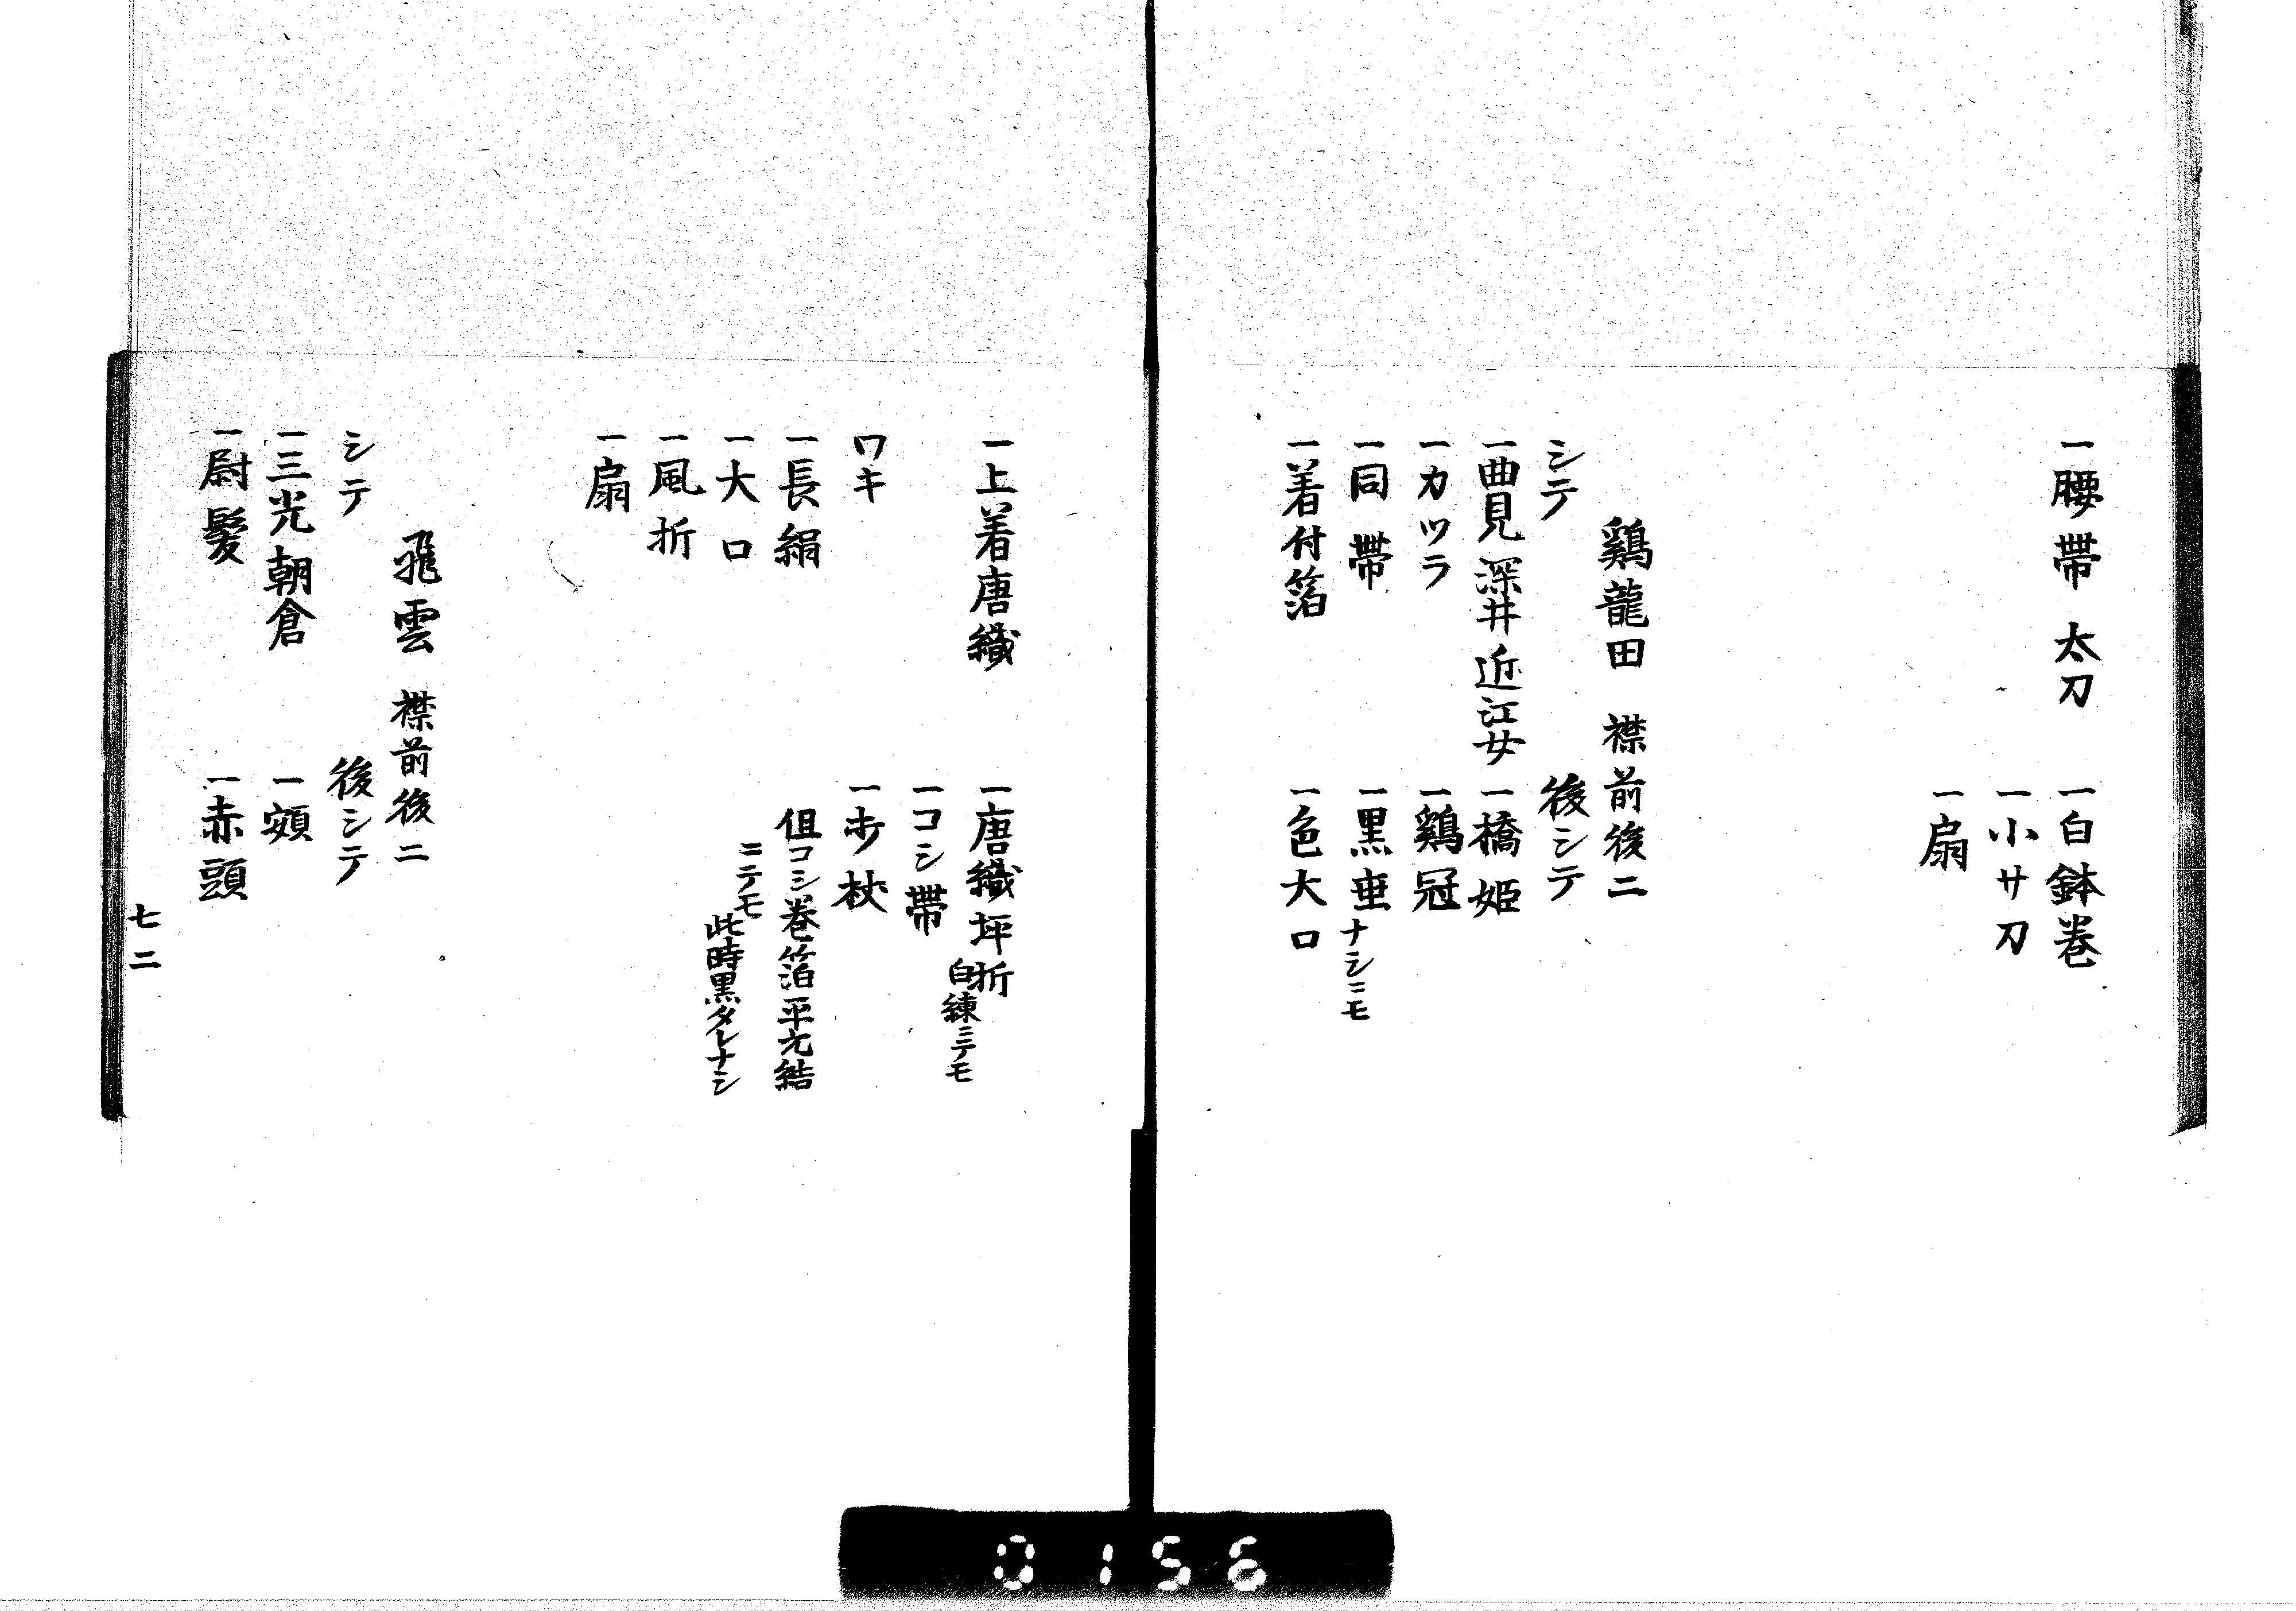 一腰帯 太刀　一白鉢巻
一小サ刀
一扇
鷄龍田　襟前後二
シテ　後シテ
一曲見 深井 近江女　一橋姫
一カツラ　一鷄冠
一同帯　一黒垂ナシニモ
一着付箔　一色大口
一上着唐織　一唐織坪折 白練ニテモ
一コシ帯
ワキ　一ホ杖
一長絹　但コシ巻箔平元結
ニテモ
一大口　此時黒タレナシ
一風折
一扇
飛雲　襟前後二
シテ　後シテ
一三光朝倉　一顰
一尉髪　一赤頭
七二
0156